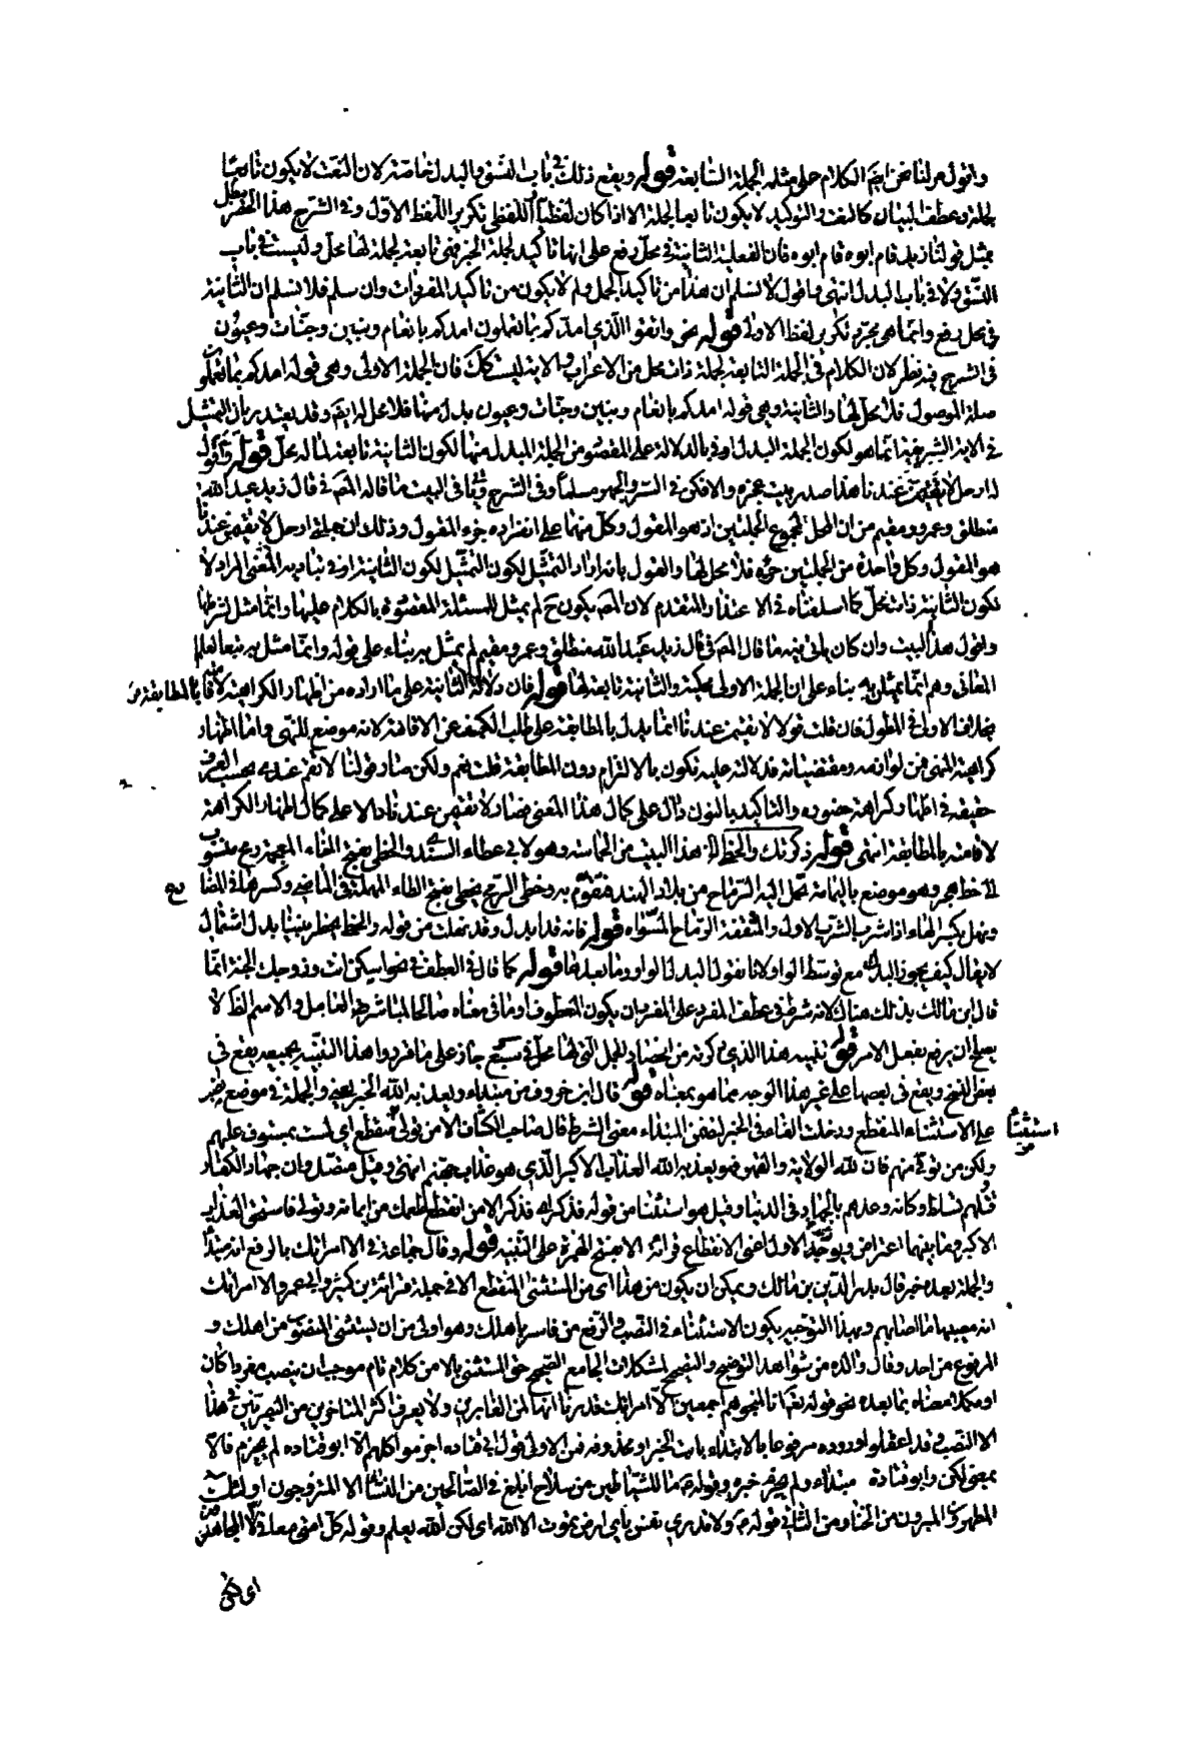 واقول مر لنا عن ابيهم الكلام على مثله الجملة السابعة قوله ويقع ذلك في باب النسق والبدل خاصة لان النعت لا يكون تابعا
لجملة وعطف البيان كالنعت والتوكيد لا يكون تابعا لجملة الا اذا كان لفظيا اللفظي تكرير اللفظ الاول وفي الشرح هذا الحصر يبطل
بمثل قولنا زيد قام ابوه قام ابوه فان الفعلية الثانية في محل رفع على انها تاكيد لجملة الخبر فهي تابعة لجملة لها محل وليست في باب
النسق ولا في باب البدل انتهى واقول لا نسلم ان هذا من تاكيد الجمل ولم لا يكون من تاكيد المفردات وان سلم فلا نسلم ان الثانية
في محل رفع وانما هي مجرد تكرير لفظ الاولى قوله نحو واتقوا الذي امدكم بما تعلمون امدكم بانعام وبنين وجنات وعيون
في الشرح فيه نظر لان الكلام في الجملة التابعة لجملة ذات محل من الاعراب والاية ليست كك فان الجملة الاولى وهي قوله امدكم بما تعلمون
صلة الموصول فلا محل لها والثانية وهي قوله امدكم بانعام وبنين وجنات وعيون بدل منها فلا محل لها ايضا وقد يعتذر بان التمثيل
في الاية الشريفة انما هو لكون الجملة البدل اوفى بالدلالة على المقصود من الجملة المبدل منها لا لكون الثانية تابعة لما له محل قوله اقول
له ارحل لا تقيمن عندنا هذا صدر بيت عجزه والا فكن في السر والجهر مسلما وفي الشرح وياتي في البيت ما قاله المص في قال زيد عبد الله
منطلق وعمرو مقيم من ان المحل لمجموع الجملتين اذ هو المقول وكل منهما على انفراده جزء المقول وذلك ان جملة ارحل لا تقيمن عندنا
هو المقول وكل واحدة من الجملتين جزؤه فلا محل لها واقول بانه اراد التمثيل لكون الثانية اوفى بتادية المعنى المراد لا
لكون الثانية ذات محل كما اسلفناه في الاعتذار المتقدم لان المص يكون ح لم يمثل المسئلة المقصودة بالكلام عليها وانما مثل لشرطها
واقول هذا البيت وان كان ياتي فيه ما قال المص في قال زيد عبد الله منطلق وعمرو مقيم لم يمثل به بناء على قوله وانما مثل به تبعا لعلماء
المعاني وهم انما يمثلون به بناء على ان الجملة الاولى محكية والثانية تابعة لها قوله فان دلالة الثانية على ما اراده من اظهار الكراهية لاقامته بالمطابقة
بخلاف الاولى في المطول فان قلت قولا لا تقيمن عندنا انما يدل بالمطابقة على طلب الكف عن الاقامة لانه موضوع للنهي واما اظهار
كراهية المنهي فمن لوازمه ومقتضياته فدلالته عليه تكون بالالتزام دون المطابقة قلت نعم ولكن صار قولنا لا تقم عندي بحسب العرف
حقيقة في اظهار كراهة حضوره والتاكيد بالنون دال على كمال هذا المعنى فصار لا تقيمن عندنا دالا على كمال اظهار الكراهة
لاقامته بالمطابقة انتهى قوله ذكرتك والخطي هذا البيت من الحماسة وهو لابي عطاء السندي والخطي بفتح الخاء المعجمة رمح منسوب
الى خط هجر وهو موضع باليمامة تحمل اليه الرماح من بلاد الهند فتقوم به وخطى الرمح يخطى بفتح الطاء المهملة في الماضي وكسرها في المضارع
ونهل بكسر الهاء اذا شرب الشرب الاول والمثقفة الرماح المسواة قوله فانه قد ابدل وقد نهلت من قوله والخطي يخطر بيننا بدل اشتمال
لا يقال كيف يجوز البدل مع توسط الواو لانا نقول البدل الواو وما بعدها قوله كما قال في العطف في نحو اسكن انت وزوجك الجنة انما
قال ابن مالك بذلك هناك لانه شرط في عطف المفرد على المفرد ان يكون المعطوف او ما في معناه صالحا لمباشرة العامل والاسم الظ لا
يصلح ان يرفع بفعل الامر قوله تنبيه هذا الذي ذكرته من انحصار الجمل التي لها محل في سبع جار على ما قرروا هذا التنبيه بجميعه يقع في
بعض النسخ ويقع في بعضها على غير هذا الوجه مما هو بمعناه قوله قال ابن خروف من مبتداء ويعذبه الله الخبر يعني والجملة في موضع نصب
على الاستثناء المنقطع ودخلت الفاء في الخبر لتضمن المبتداء معنى الشرط قال صاحب الكشاف الا من تولى منقطع اي لست بمستول عليهم
ولكن من تولى منهم فان لله الولاية والقهر فهو يعذبه الله العذاب الاكبر الذي هو عذاب جهنم انتهى وقيل متصل فان جهاد الكفار
وقتلهم تسلط وكانه وعدهم بالجهاد في الدنيا وقيل هو استثناء من قوله فذكر اي فذكر الا من انقطع طمعك من ايمانه وتولى فاستحق العذاب
الاكبر وما بينهما اعتراض ويؤيد الاول اعني الانقطاع قرائة الا بفتح الهمزة على التنبيه قوله وقال جماعة في الا امراتك بالرفع انه مبتدا
والجملة بعده خبر قال بدر الدين بن مالك ويمكن ان يكون من هذا اى من المستثنى المنقطع الا في جملة قرائة بن كثير وابي عمرو الا امراتك
انه مصيبها ما اصابهم وبهذا التوجيه يكون الاستثناء في النصب والرفع من فاسر باهلك وهو اولى من ان يستثنى المنصوب من اهلك و
المرفوع من احد وقال والده من شواهد التوضيح والتصحيح لمشكلات الجامع الصحيح حق المستثنى بالا من كلام تام موجب ان ينصب مفردا كان
او مكملا معناه بما بعده نحو قوله تعم انا لمنجوهم اجمعين الا امراته قدرنا انها لمن الغابرين ولا يعرف اكثر المتاخرين من البصريين في هذا
الا النصب وقد اغفلوا وروده مرفوعا بالابتداء ثابت الخبر او محذوفه فمن الاول قول ابي قتادة احرموا كلهم الا ابو قتادة لم يحرم فالا
بمعنى لكن وابو قتادة مبتداء ولم يحرم خبره وقوله م ما للشياطين من سلاح ابلغ في الصالحين من النساء الا المتزوجون اولئك
المطهرون المبرؤن من الخنا ومن الثاني قوله م ولا تدري نفس باي ارض تموت الا الله اى لكن الله يعلم وقوله كل امتي معافى الا المجاهرون
اى لكن